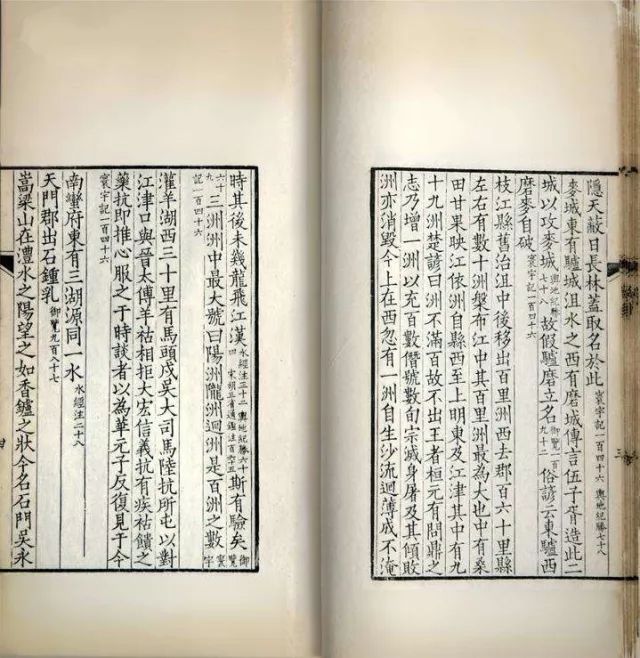 隱天蔽日長林蓋取名於此寰宇記一百四十六輿地紀勝七十八
麥城東有驢城沮水之西有磨城傳言伍子胥造此二
城以攻麥城輿地紀勝七十八故假驢磨立名御覽一百九十二俗諺云東驢西
磨麥自破寰宇記一百四十六
枝江縣舊治沮中後移出百里洲西去郡一百六十里縣
左右有數十洲槃布江中其百里洲最為大也中有桑
田甘果映江依洲自縣西至上明東及江津其中有九
十九洲楚諺曰洲不滿百故不出王者桓元有問鼎之
志乃增一洲以充百數僭號數旬宗滅身屠及其傾敗
洲亦消毀今上在西忽有一洲自生沙流迴薄成不淹
時其後未幾龍飛江漢水經注三十二輿地紀勝六十四宋胡三省通鑑注百六五斯有驗矣御覽
六十九三洲洲中最大號曰陽洲隴洲迴洲是百洲之數寰宇
記一百四十六
灌羊湖西三十里有馬頭戍吳大司馬陸抗所屯以對
江津口與晉太傅羊祜相拒大宏信義抗有疾祜饋之
藥抗即推心服之于時談者以為華元子反復見于今
寰宇記一百四十六
南蠻府東有三湖源同一水水經注二十八
天門郡出石鍾乳御覽九百八十七
嵩梁山在澧水之陽望之如香鑪之狀今名石門吳永